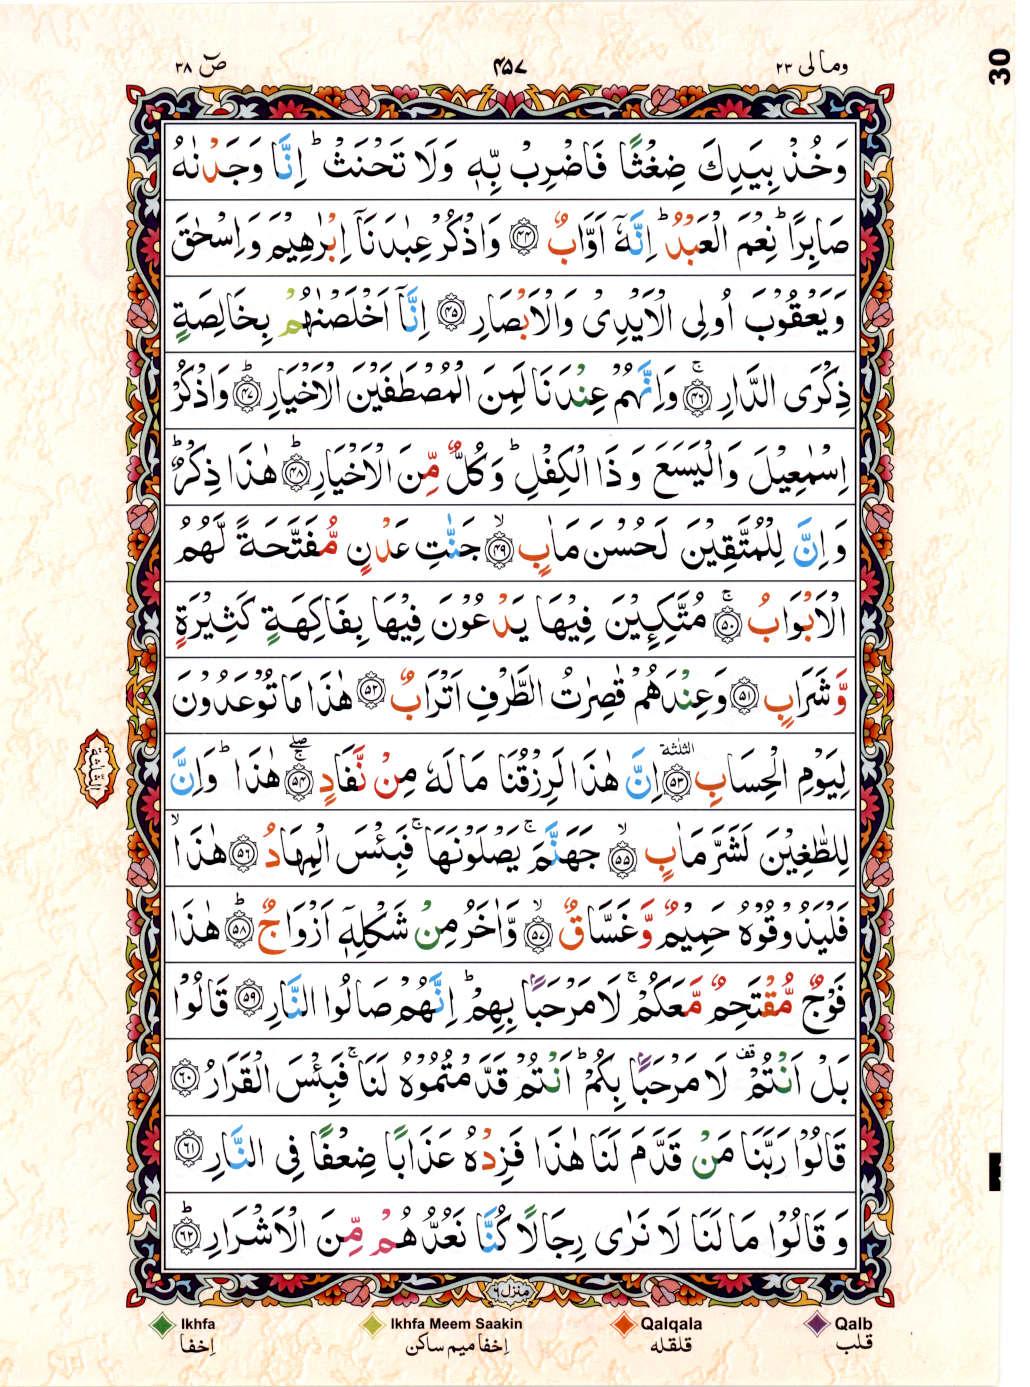 ومالی ۲۳
۴۵۷
صٓ ۳۸
30
وَخُذْ بِيَدِكَ ضِغْثًا فَاضْرِبْ بِّهٖ وَلَا تَحْنَثْ ؕ اِنَّا وَجَدْنٰهُ
صَابِرًا ؕ نِعْمَ الْعَبْدُ ؕ اِنَّهٗۤ اَوَّابٌ ﴿۴۴﴾ وَاذْكُرْ عِبٰدَنَاۤ اِبْرٰهِيْمَ وَاِسْحٰقَ
وَيَعْقُوْبَ اُولِى الْاَيْدِىْ وَالْاَبْصَارِ ﴿۴۵﴾ اِنَّاۤ اَخْلَصْنٰهُمْ بِخَالِصَةٍ
ذِكْرَى الدَّارِ ۚ ﴿۴۶﴾ وَاِنَّهُمْ عِنْدَنَا لَمِنَ الْمُصْطَفَيْنَ الْاَخْيَارِ ؕ ﴿۴۷﴾ وَاذْكُرْ
اِسْمٰعِيْلَ وَالْيَسَعَ وَذَا الْكِفْلِ ؕ وَكُلٌّ مِّنَ الْاَخْيَارِ ؕ ﴿۴۸﴾ هٰذَا ذِكْرٌ ؕ
وَاِنَّ لِلْمُتَّقِيْنَ لَحُسْنَ مَاٰبٍ ۙ ﴿۴۹﴾ جَنّٰتِ عَدْنٍ مُّفَتَّحَةً لَّهُمُ
الْاَبْوَابُ ۚ ﴿۵۰﴾ مُتَّكِـِٕيْنَ فِيْهَا يَدْعُوْنَ فِيْهَا بِفَاكِهَةٍ كَثِيْرَةٍ
وَّشَرَابٍ ﴿۵۱﴾ وَعِنْدَهُمْ قٰصِرٰتُ الطَّرْفِ اَتْرَابٌ ﴿۵۲﴾ هٰذَا مَا تُوْعَدُوْنَ
لِيَوْمِ الْحِسَابِ ﴿۵۳﴾ الثلٰثة اِنَّ هٰذَا لَرِزْقُنَا مَا لَهٗ مِنْ نَّفَادٍ ۚ ۖ ﴿۵۴﴾ هٰذَا ؕ وَاِنَّ
لِلطّٰغِيْنَ لَشَرَّ مَاٰبٍ ۙ ﴿۵۵﴾ جَهَنَّمَ ۚ يَصْلَوْنَهَا ۚ فَبِئْسَ الْمِهَادُ ﴿۵۶﴾ هٰذَا ۙ
فَلْيَذُوْقُوْهُ حَمِيْمٌ وَّغَسَّاقٌ ۙ ﴿۵۷﴾ وَّاٰخَرُ مِنْ شَكْلِهٖۤ اَزْوَاجٌ ؕ ﴿۵۸﴾ هٰذَا
فَوْجٌ مُّقْتَحِمٌ مَّعَكُمْ ۚ لَا مَرْحَبًۢا بِهِمْ ؕ اِنَّهُمْ صَالُوا النَّارِ ﴿۵۹﴾ قَالُوْا
بَلْ اَنْتُمْ قف لَا مَرْحَبًۢا بِكُمْ ؕ اَنْتُمْ قَدَّمْتُمُوْهُ لَنَا ۚ فَبِئْسَ الْقَرَارُ ﴿۶۰﴾
قَالُوْا رَبَّنَا مَنْ قَدَّمَ لَنَا هٰذَا فَزِدْهُ عَذَابًا ضِعْفًا فِى النَّارِ ﴿۶۱﴾
وَقَالُوْا مَا لَنَا لَا نَرٰى رِجَالًا كُنَّا نَعُدُّهُمْ مِّنَ الْاَشْرَارِ ؕ ﴿۶۲﴾
منزل ۶
Ikhfa
اِخفا
Ikhfa Meem Saakin
اِخفا میم ساکن
Qalqala
قلقله
Qalb
قلب